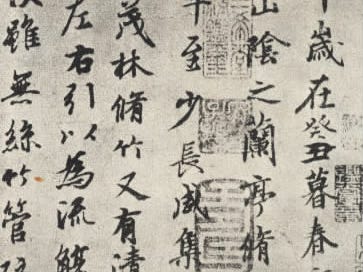 歲在癸丑暮春
山陰之蘭亭脩
至少長咸集
茂林脩竹又有清
左右引以為流觴
雖無絲竹管